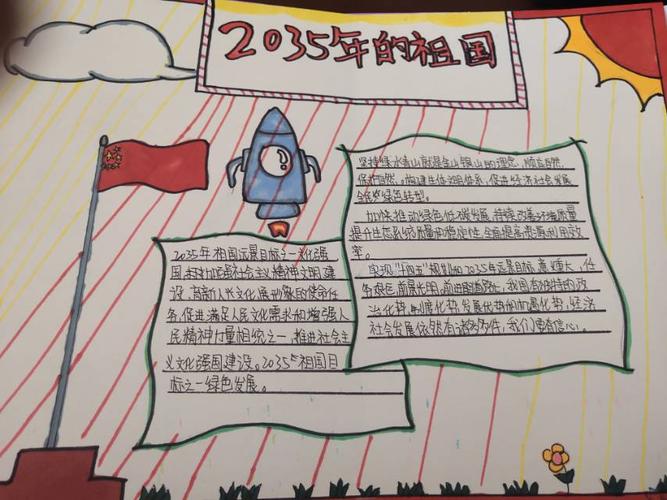 2035年的祖国
坚持绿水青山就是金山银山的理念,顺应自然,
保护自然。构建生体系,促进经济社会发展
全绿色转型。
加快推动绿色低碳发展,持续改善环境质量
提升生态系统质量和稳定性,全面提高资源利用效
率。
实现"十四五"规划和2035年远景目标,意重大,任
务艰巨,前景光明,前进道路,我国有独特的政
治优势,制度优势,发展优势和机遇优势,经济
社会发展依然有诸多条件,我们有信心。
2035年祖国远景目标之一文化强
国,加强社会主义精神文明建
设,育新人,兴文化,展形象的使命任
务,促进满足人民文化需求和增强人
民精神力量相统之一,推进社会主
义文化强国建设。2035年祖国目
标之一绿色发展。